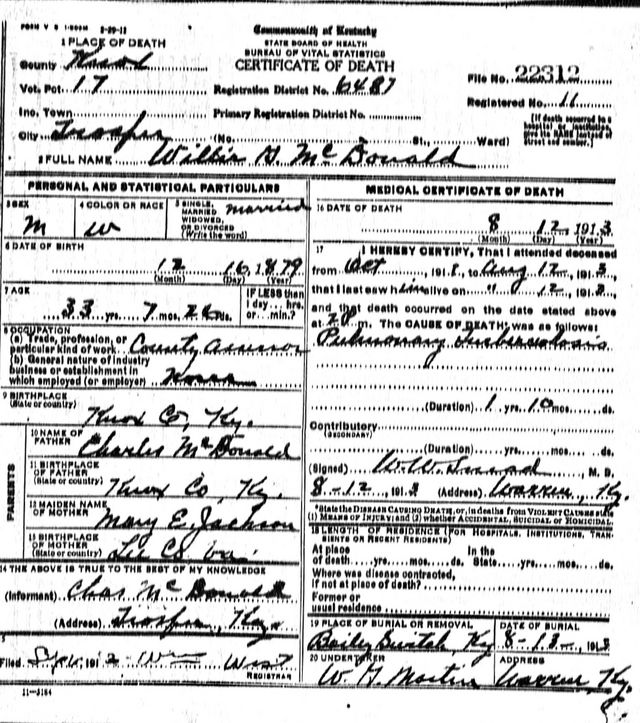 FORM V S 1-500M 8-29-11
Commonwealth of Kentucky
STATE BOARD OF HEALTH
BUREAU OF VITAL STATISTICS
CERTIFICATE OF DEATH
1 PLACE OF DEATH
County Knox
Vot. Pct. 17
Registration District No. 6487
File No. 22312
Inc. Town
Primary Registration District No.
Registered No. 11
City Trosper (No. St., Ward)
[If death occurred in a hospital or institution, give its NAME instead of street and number.]
2 FULL NAME Willie G. McDonald
PERSONAL AND STATISTICAL PARTICULARS
3 SEX
M
4 COLOR OR RACE
W
5 SINGLE, MARRIED WIDOWED, OR DIVORCED (Write the word)
married
6 DATE OF BIRTH
12 16 1879
(Month) (Day) (Year)
7 AGE
33 yrs. 7 mos. 26 ds.
IF LESS than 1 day... hrs. or... min.?
8 OCCUPATION
(a) Trade, profession, or particular kind of work County Assessor
(b) General nature of industry business or establishment in which employed (or employer) Knox
9 BIRTHPLACE
(State or country)
Knox Co, Ky.
PARENTS
10 NAME OF FATHER
Charles McDonald
11 BIRTHPLACE OF FATHER
(State or country)
Knox Co, Ky.
12 MAIDEN NAME OF MOTHER
Mary E. Jackson
13 BIRTHPLACE OF MOTHER
(State or country)
Lee Co Va.
14 THE ABOVE IS TRUE TO THE BEST OF MY KNOWLEDGE
(Informant) Chas McDonald
(Address) Trosper, Ky.
Filed 191 Wm West
REGISTRAR
11-3184
MEDICAL CERTIFICATE OF DEATH
16 DATE OF DEATH
8 12 1913
(Month) (Day) (Year)
17 I HEREBY CERTIFY, That I attended deceased
from Oct, 191 to Aug 12, 1913,
that I last saw him alive on " 12, 1913,
and that death occurred on the date stated above
at m. The CAUSE OF DEATH was as follows:
Pulmonary Tuberculosis
(Duration) 1 yrs. 10 mos. ds.
Contributory
(SECONDARY)
(Duration) yrs. mos. ds.
(Signed) W.W., M. D.
8-12, 1913 (Address) Warren, Ky.
State the DISEASE CAUSING DEATH, or, in deaths from VIOLENT CAUSES state (1) MEANS OF INJURY; and (2) whether ACCIDENTAL, SUICIDAL or HOMICIDAL.
18 LENGTH OF RESIDENCE (FOR HOSPITALS, INSTITUTIONS, TRANSIENTS OR RECENT RESIDENTS)
At place of death yrs. mos. ds. In the State yrs. mos. ds.
Where was disease contracted, if not at place of death?
Former or usual residence
19 PLACE OF BURIAL OR REMOVAL
Bailey Switch, Ky
DATE OF BURIAL
8-13-, 1913
20 UNDERTAKER
W. G. Martin
ADDRESS
Warren Ky.